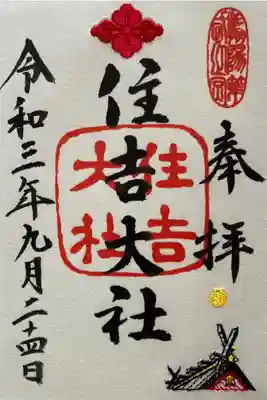 奉拝
住吉大社
住吉
大社
令和三年九月二十四日